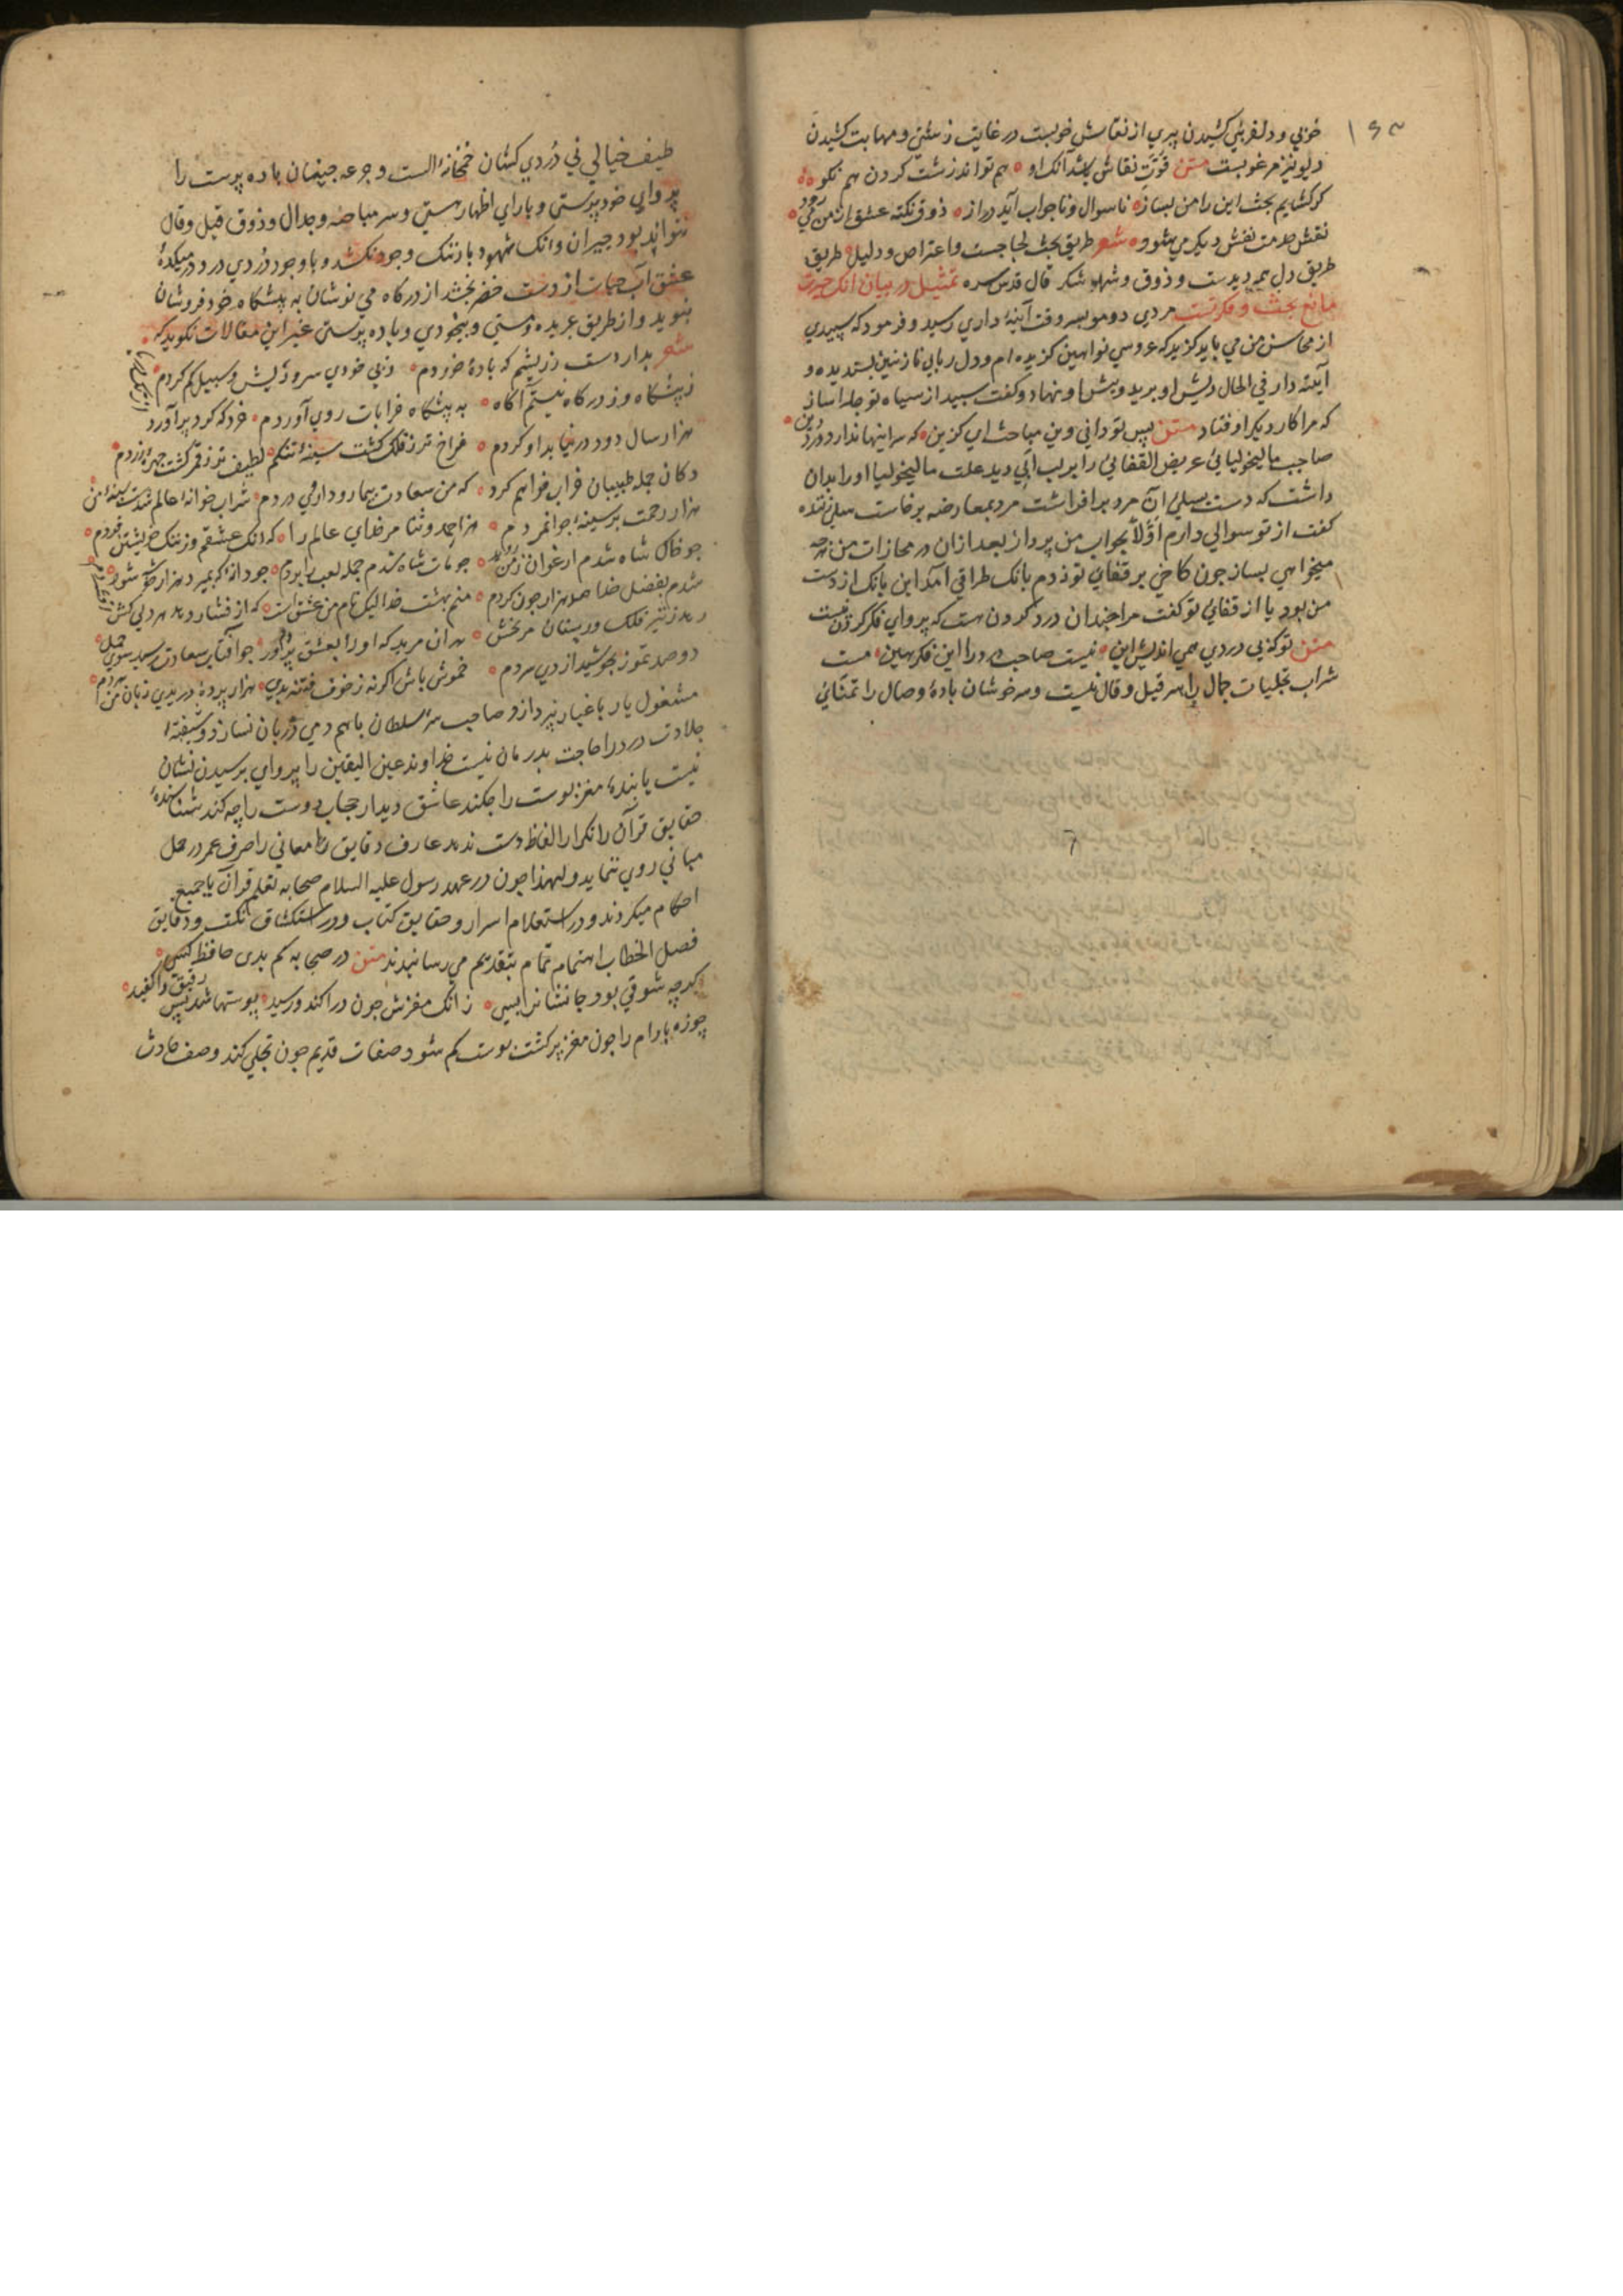 ۱۶۳
خوبی و دلفریبی کشیدن پیری از نقاش خوبست در غایت زشتی و مهابت کشیدن
دیو نیز مرغوبست متن قوت نقاش باشد آنک او هم تواند زشت کردن هم نکو
کر کشایم بحث این را من بساز تا سوال و تا جواب آید دراز ذوق نکته عشق از من می رود
نقش خدمت نقش دیکر می شود شعر طریق بحث لجاجست و اعتراض و دلیل طریق
طریق دل همه دیدست و ذوق و شهد و شکر قال قدس سره تمثیل در بیان آنک حیرت
مانع بحث و فکرتست مردی دومو بر وقت آینه داری رسید و فرمود که سپیدی
از محاسن من می باید کزید که عروسی نو آیین کزیده ام و دل ربایی نازنین پسندیده و
آینه دار فی الحال ریش او برید و پیش او نهاد و کفت سپید از سیاه تو جدا ساز
که مرا کار دیکر اوفتاد متن پس تو دانی وین مباحث ای کزین که سر اینها ندارد درد دین
صاحب مالیخولیایی عریض القفایی را بر لب آبی دید علت مالیخولیا او را بران
داشت که دست سیلی آن مرد بر افراشت مرد بمعارضه برخاست سیلی زننده
کفت از تو سوالی دارم اولا بجواب من پرداز بعد ازان در مجازات من هرچه
میخواهی بساز چون کاجی بر قفای تو زدم بانک طراقی آمد این بانک از دست
من بود یا از قفای تو کفت مرا چندان درد کردن هست که پروای فکر کردن نیست
متن تو که بی دردی همی اندیش این نیست صاحب درد را این فکر هین مست
شراب تجلیات جمال را سر قیل و قال نیست و سرخوشان باده وصال را تمنای
طیف خیالی نی دردی کشان خمخانه الست و جرعه چینان باده پرست را
پروای خود پرستی و یارای اظهار هستی و سر مباحثه و جدال و ذوق قیل و قال
نتواند بود حیران و انک شهود باز ننک وجود نکشد و با وجود دردی درد در میکده
عشق آب حیات از دست خضر نچشد از درکاه می نوشان به پیشکاه خود فروشان
نپوید و از طریق عربده و مستی و بیخودی و باده پرستی غیر این مقالات نکوید که
شعر بدار دست ز ریشم که باده خوردم ز بی خودی سر و ریش و سبیل کم کردم
ز پیشکاه و ز درکاه نیستم آکاه به پیشکاه خرابات روی آوردم خرد که کرد برآورد
هزار سال دود در نیابد او کردم فراخ تر ز فلک کشت سینه تنکم لطیف تر ز قمر کشت چهره زردم
دکان جمله طبیبان خراب خواهم کرد که من سعادت بیمار و داروی دردم شراب خانه عالم شدست سینه من
هزار رحمت بر سینه جوانمردم هزار حمد و ثنا مر خدای عالم را که دنک عشقم و از ننک خویشتن فردم
چو خاک شاه شدم ارغوان ز من روید چو مات شاه شدم جمله لعب را بردم چو دانه که بمیرد هزار خوشه شود
شدم بفضل خدا صد هزار چون کردم منم بهشت خدا لیک نام من عشق است که از فشار رهد هر دلی کش
رهد ز تیر فلک وز سنان مریخش هر آن مرید که او را بعشق پروردم چو آفتاب سعادت رسید سوی حمل
دو صد تموز بجوشید از دی سردم خموش باش اکرنه ز خوف فتنه بدی هزار پرده دریدی زبان من هر دم
مشغول یار با غیار نپردازد و صاحب سر سلطان باهم دمی دربان نسازد و شیفته
حلاوت درد را حاجت بدرمان نیست خداوند عین الیقین را پروای پرسیدن نشان
نیست یابنده مغز پوست را چکند عاشق دیدار حجاب دوست را چه کند شناسنده
حقایق قرآن را تکرار الفاظ دست ندهد عارف دقایق معانی را صرف عمر در حل
مبانی روی ننماید و لهذا چون در عهد رسول علیه السلام صحابه تعلم قرآن با جمیع
احکام میکردند و در استعلام اسرار و حقایق کتاب و در استکشاف نکت و دقایق
فصل الخطاب اهتمام تمام بتقدیم می رسانیدند متن در صحابه کم بدی حافظ کسی
کرچه شوقی بود جانشانرا بسی زانک مغزش چون دراکند و رسید پوستها شد بس رقیق و واکفید
جوزه بادام را چون مغز پر کشت پوست کم شود صفات قدیم چون تجلی کند وصف حادث